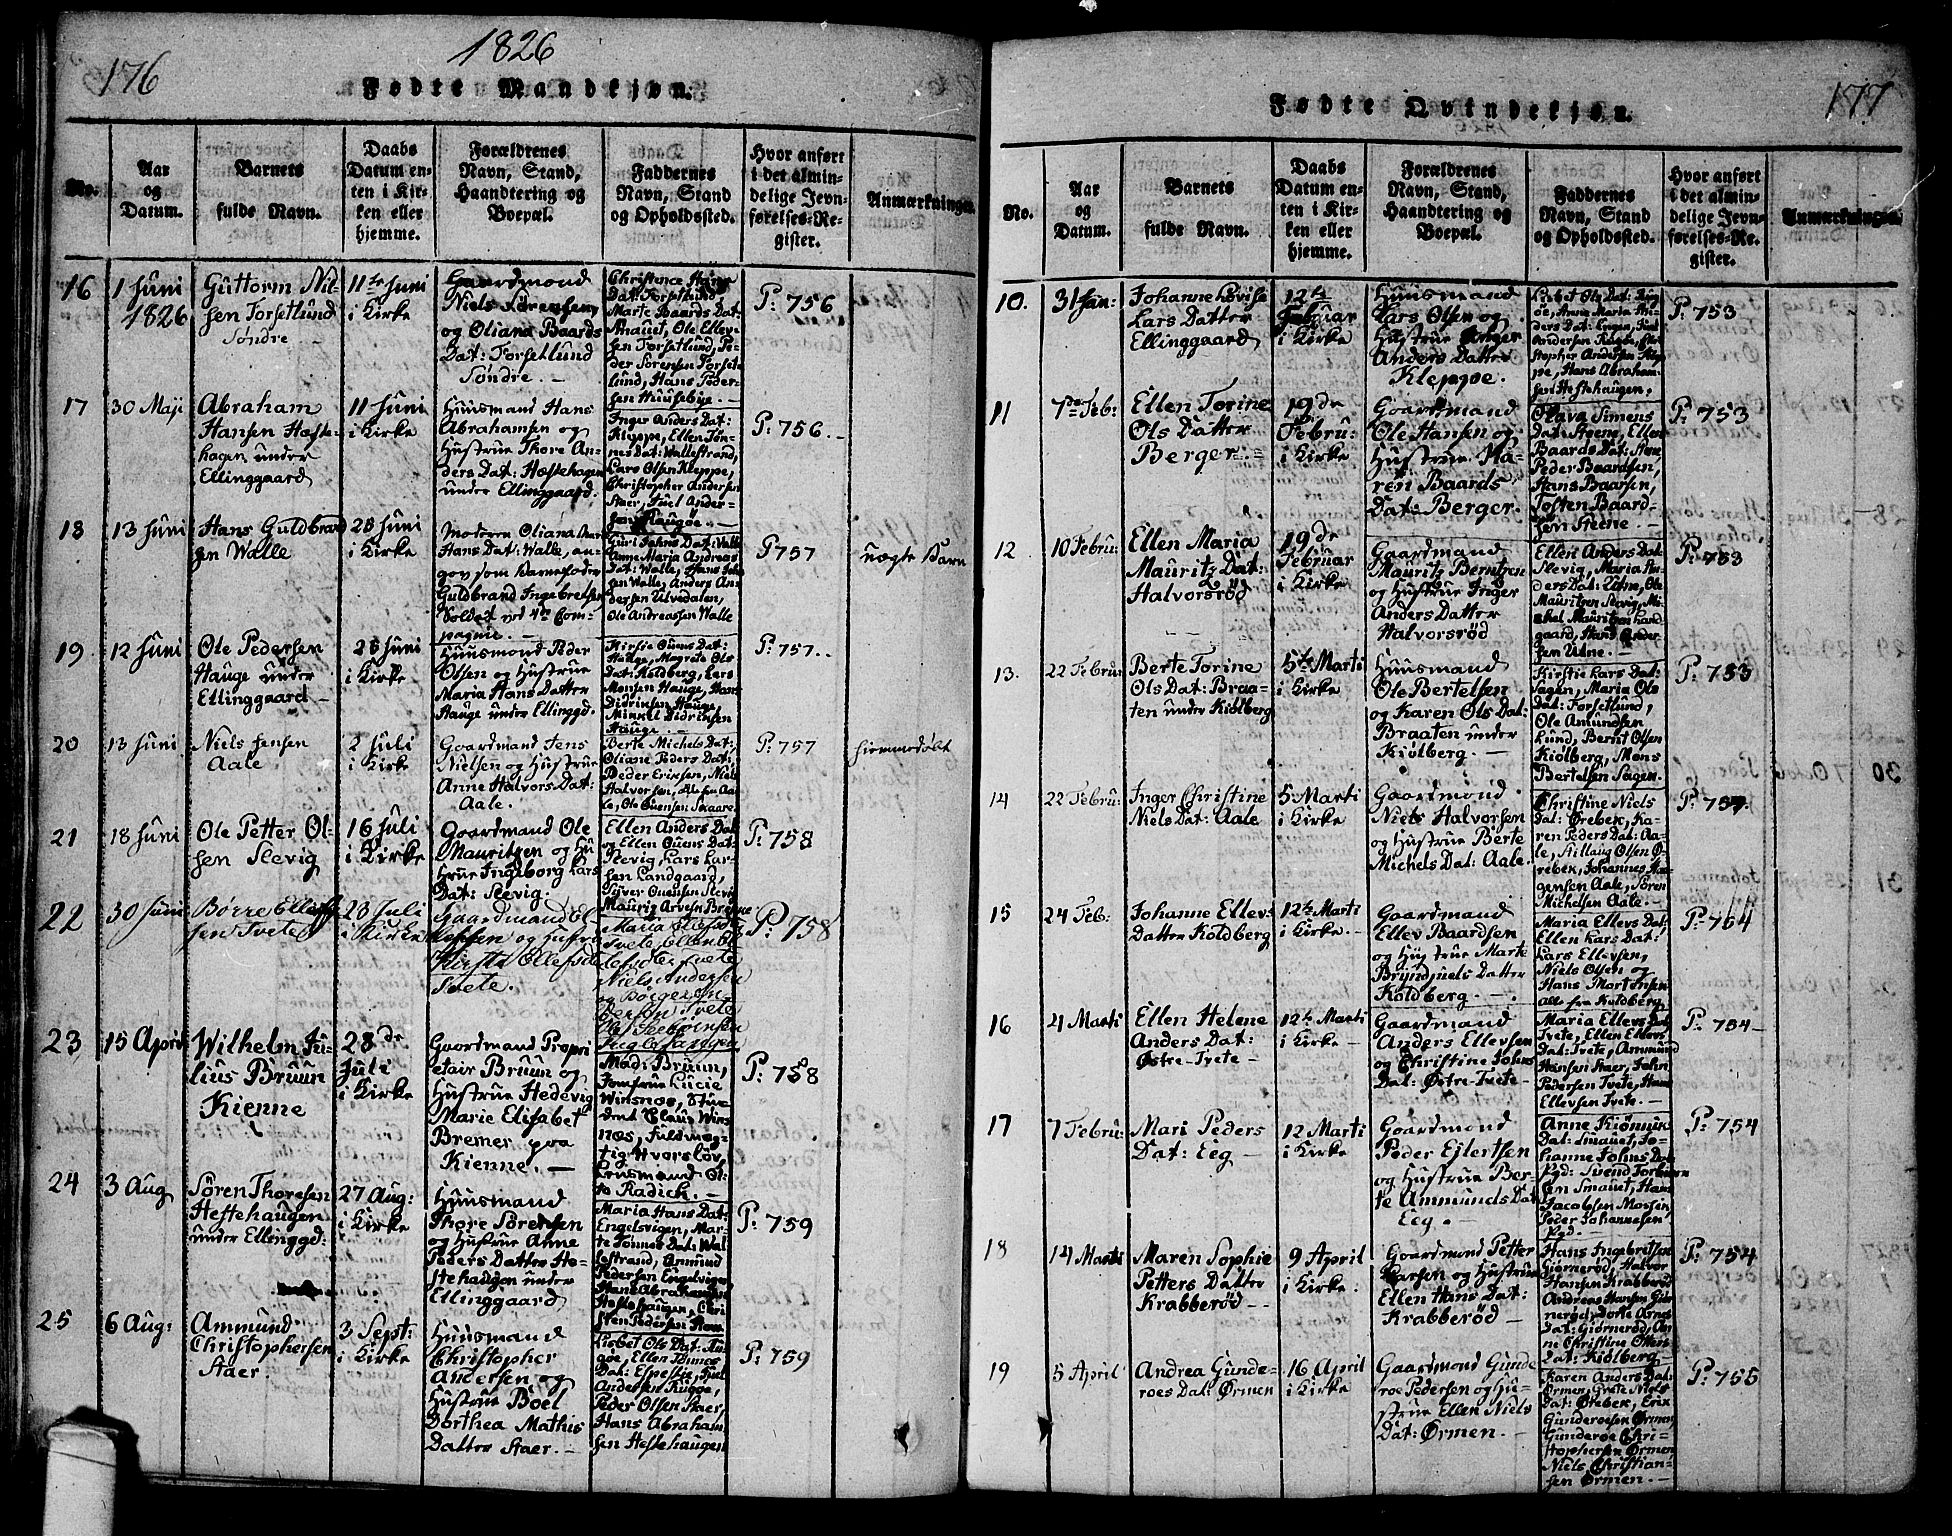 176
1826
Fødte Mandkjøn.
No.
Aar
og
Datum.
Barnets
fulde Navn.
Daabs
Datum en-
ten i Kir-
ken eller
hjemme.
Forældrenes
Navn, Stand,
Haandtering og
Boepæl.
Faddernes
Navn, Stand
og Opholdssted.
Hvor anført
i det almin-
delige Jevn-
førelses-Re-
gister.
Anmærkninger
16
1 Juni
1826
Guttorm Nil-
sen Forsetlund
Søndre
11te Juni
i Kirke
Gaardmand
Niels Sørensen
og Oliana Baards
Dat: Forsetlund
Søndre. —
Marte Baards Dat:
Anauet, Ole Ellev-
sen Forsetlund, Pe-
der Sørensen Forset-
lund, Hans Peder-
sen Huusebye. —
P: 756
17
30 Maji
Abraham
Hansen Hæste-
hagen under
Ellinggaard
11 Juni
i Kirke
Huusmand Hans
Abrahamsen og
Hustrue Thore An-
ders Dat: Hæstehagen
under Ellinggaard.
Inger Anders Dat:
Kleppe, Ellen Tøn-
nes Dat: Wallestrand,
Lars Olsen Kleppe,
Christopher Andersen
Staer, Juel Ander-
sen Raugøe. —
P: 756.
18
13 Juni
Hans Guldbrand
sen Walle
28 Juni
i Kirke
Moderen Oliana
Hans Dat: Walle, an-
gov som Barnefader
Guldbrand Ingebretsen
Soldat ved 4de Com-
pagnie. —
Guri Jahns Dat: Walle
Anne Maria Andreas
Dat: Walle, Hans Joh
sen Walle, Anders An-
dersen Ulvedalen,
Ole Andreassen Walle
P 757
uægte Barn
19
12 Juni
Ole Pedersen
Hauge under
Ellinggaard —
28 Juni
i Kirke
Huusmand Peder
Olsen og Hustrue
Maria Hans Datter
Hauge under Ellinggd.
Kirstie Ouens Dat:
Hauge, Magrete Ols
Dat: Koldberg, Lars
Monsen Hauge, Hans
Didrinsen Hauge
Minnel Didrinsen
Hauge. —
P: 757.
20
13 Juni
Niels Jensen
Aale
2 Juli
i Kirke
Gaardmand Jens
Nielsen og Hustrue
Anne Halvors Dat:
Aale.
Berte Michels Dat:
Oliane Peders Dat:
Peder Eriksen, Niels
Halvorsen, Alle fra Aa-
le, Ole Guensen Skaare.
P: 757
hiemmedøbt
21
18 Juni
Ole Petter Ol-
sen Slevig
16 Juli
i Kirke
Gaardmand Ole
Mauritzen og Hu
strue Ingeborg Lars
Dat: Slevig.
Ellen Anders Dat:
og Ellen Ouens Dat:
Slevig, Lars Lar-
sen Landgaard,
Syver Ouensen Slevig
Mauriz Arvesen Brenne
P: 758
22
30 Juni
Børre Ellef-
sen Tvete
23 Juli
i Kirke
Gaardmand El
leffsen og Hustru
Kirstie Ellefsdr
Tvete.
Maria Ellefsdr
Tvete, Ellen El-
lefsdr Tvete
Niels Andersen
og Børger An-
dersen Tvete
P: 758
23
15 April
Wilhelm Ju-
lius Bruun
Kienne
28de
Juli
i Kirke
Gaardmand Propri
etair Bruun og
Hustrue Hedevig
Marie Elisabet
Bremer paa
Kienne. —
Mad: Bruun,
Jomfrue Lucie
Winsnos, Stu-
dent Claus Wins
nos, Fuldmæg-
tig Hvorslov,
Lensmand Ot-
to Radich. —
P: 758
24
3 Aug
Søren Thoresen
Heftehaugen
under Ellenggd:
27 Aug:
i Kirke
Huusmand
Thore Sørensen
og Hustrue Anne
Peders Datter He-
stehaugen under
Ellinggaard
Maria Hans Dat:
Engelsvigen, Mar-
te Tønnes Dat: Wal-
lestrand, Amund
Pedersen Engelvigen
Hans Abrahamsen
Hestehaugen, Chri
sten Pedersen
P: 759
25
6 Aug:
Ammund
Christophersen
Staer.
3 Sept:
i Kirke
Huusmand
Christopher
Andersen og
Hustrue Boel
Dorthea Mathis
Datter Staer. —
Lisbet Ols Dat: Rau
gøe, Ellen Tønnes
Dat: Espelie, Juel
Andersen Rugge,
Peder Olsen Staer,
Hans Abraham
sen Hestehaugen
P: 759
177
Fødte Qvindekjøn.
No.
Aar
og
Datum.
Barnets
fulde Navn.
Daabs
Datum en-
ten i Kir-
ken eller
hjemme.
Forældrenes
Navn, Stand,
Haandtering og
Boepæl.
Faddernes
Navn, Stand
og Opholdssted.
Hvor anført
i det almin-
delige Jevn-
førelses-Re-
gister.
Anmærkninger
10.
31 Jan:
Johanne Lovise
Lars Datter
Ellinggaard
12te
Februar
i Kirke
Huusmand
Lars Olsen og
Hustrue Inger
Anders Datter
Kleppe.
Lisbet Ols Dat: Rau
gøe, Anne Maria An-
ders Dat: Engen, Juel
Andersen Raugøe, Chri
stopher Andersen Klep
pe, Hans Abraham-
sen Hestehaugen.
P: 753
11
7de Feb:
Ellen Torine
Ols Datter
Berger. —
19de
Febru:
i Kirke
Gaardmand
Ole Hansen og
Hustrue Ka-
ren Baards
Dat: Berger.
Olava Simens
Dat: Steene, Ellen
Baards Dat: Stene
Peder Baardsen,
Hans Baarsen,
Tosten Baard-
sen Steene. —
P: 753
12
10 Febru:
Ellen Maria
Mauritz Dat:
Halvorsrød
19de
Februar
i Kirke
Gaardmand
Mauritz Berntzen
og Hustrue Inger
Anders Datter
Halvorsrød
Ellen Anders Dat:
Slevig, Maria An-
ders Dat: Utne, Ole
Mauritzen Slevig, Mi-
chel Mauritzen Land
gaard, Hans Ander-
sen Utne. —
P: 753
13.
22 Febru:
Berte Torine
Ols Dat: Braa-
ten under Kiølberg
5te Marti
i Kirke
Huusmand
Ole Bertelsen
og Karen Ols Dat:
Braaten under
Kiølberg. —
Kirstie Lars Dat:
Sagen, Maria Ols
Dat: Forsetlund,
Ole Amundsen
Lund, Bernt Olsen
Kiølberg, Mons
Bertelsen Sagen.
P: 753
14
22 Febru:
Inger Christine
Niels Dat: Aale
5 Marti
i Kirke
Gaardmond
Niels Halvorsen
og Hustrue Berte
Michels Dat: Aale.
Christine Niels
Dat: Ørebek, Ka-
ren Peders Dat: Aa-
le, Stillaug Olsen Ø-
rebek, Johannes Mo-
gensen Aale, Søren
Michelsen Aale. —
P: 754
15
24 Feb:
Johanne Ellevs
Datter Koldberg
12te Marti
i Kirke. —
Gaardmand
Ellev Baardsen
og Hustrue Marte
Bryndjuels Datter
Koldberg. —
Maria Ellevs Dat:
Ellen Lars Dat:
Lars Ellevsen,
Niels Olsen og
Hans Mortensen
alle fra Koldberg.
P: 754
16
4 Marti
Ellen Helene
Anders Dat:
Østre-Tvete —
12te Marti
i Kirke —
Gaardmand
Anders Ellevsen
og Christine Johns
Dat: Østre-Tvete —
Maria Ellevs Dat:
Dat: Tvete, Ammund
Hansen Staer, John
Pedersen Tvete, Hans
Ellevsen Tvete. —
P: 754 —
17
7 Febru:
Mari Peders
Dat: Eeg —
12 Marti
i Kirke
Gaardmond
Peder Ejlertsen
og Hustrue Ber-
te Ammunds Dat:
Eeg. —
Anne Kiønnik
Dat: Smauet, Jo-
hanne Johns Dat:
Pgd: Svend Torbiørn
sen Smauet, Hans
Jacobsen Mossen
Peder Johannesen
Pgd. —
P: 754
18
14 Marti
Maren Sophie
Petters Datter
Krabberød —
9 April
i Kirke.
Gaardmand Petter
Larsen og Hustrue
Ellen Hans Dat:
Krabberød —
Hans Ingebritsen
Giørnerød, Halvor
Hansen Krabberød
Andreas Hansen Giør-
nerød, Dorte Arnes
Dat: Giørnerød, An-
ne Christine Otters
Dat: Kiølberg —
P: 754
19
5 April
Andrea Gunde-
roes Dat: Ørmen
16 April
i Kirke
Gaardmand Gunde
roe Pedersen og Hu-
strue Ellen Niels
Dat: Ørmen. —
Karen Anders Dat:
Ørmen, Grete Niels
Dat: Ørebek, Erik
Gunderoesen Ørmen
Gunderoe Chri-
stophersen Ørmen
Niels Christian-
sen Ørmen. —
P: 755